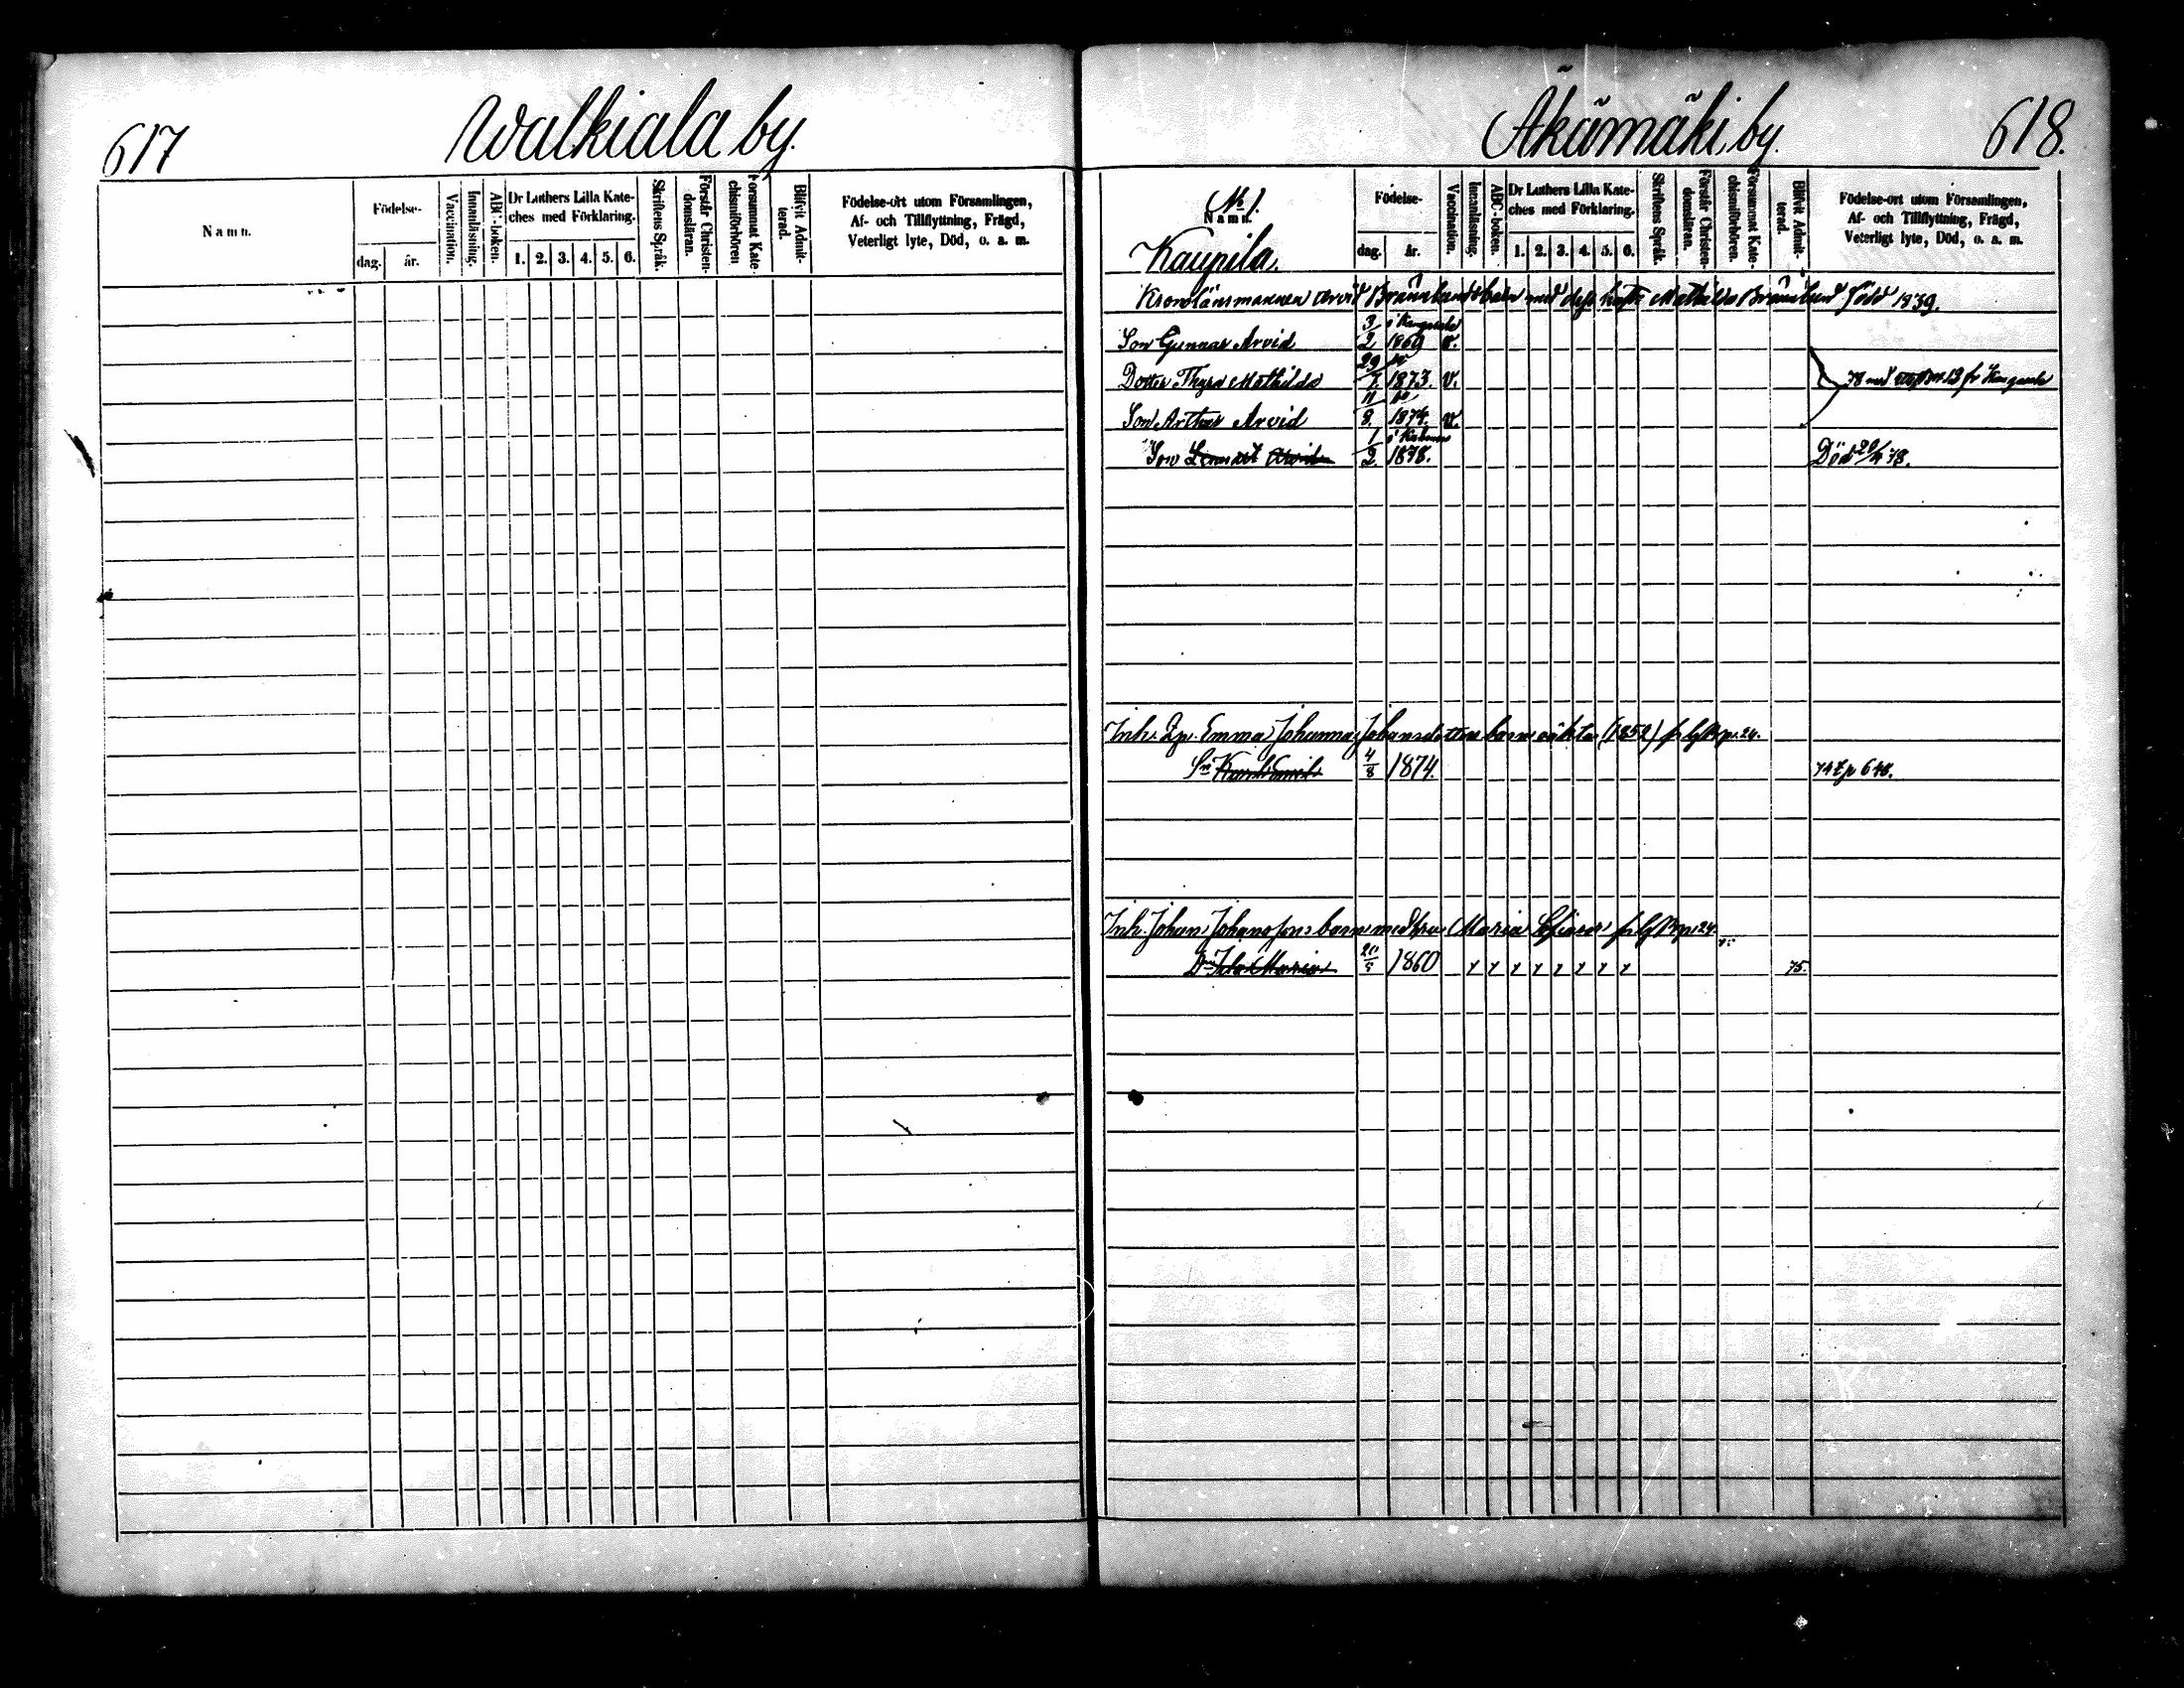 617
Walkiala by.
Namn.
Födelse-
dag.
år.
Vaccination.
Innanläsning.
ABC-boken.
Dr Luthers Lilla Kate-
ches med Förklaring.
1. 2. 3. 4. 5. 6.
Skriftens Språk.
Förstår Christen-
domsläran.
Försummat Kate-
chismiförhören
Blifvit Admit-
terad.
Födelse-ort utom Församlingen,
Af- och Tillflyttning, Frägd,
Veterligt lyte, Död, o. a. m.
Akämäki by.
618.
№ 1.
Namn.
Kaupila.
Födelse-
dag.
år.
Vaccination.
Innanläsning.
ABC-boken.
Dr Luthers Lilla Kate-
ches med Förklaring.
1. 2. 3. 4. 5. 6.
Skriftens Språk.
Förstår Christen-
domsläran.
Försummat Kate-
chismiförhören.
Blifvit Admit-
terad.
Födelse-ort utom Församlingen,
Af- och Tillflyttning, Frägd,
Veterligt lyte, Död, o. a. m.
Kronolänsmannen Arvid barn med dess Mathilda född 1839.
Son Gunnar Arvid 3/2 1869 v.
Dotter Thyra Mathilda 29/7 1873. v. 78 med 13 fr
Son Arthur Arvid 11/8 1874. v.
Son 1/2 1878. Död 78.
Inh. Emma Johanna Johansdotters barn (1852) p. 24.
Sn Karl Emil 4/8 1874. 74 t p 648.
Inh. Johan Johanssons barn med hru Maria p. 24.
Dr Ida Maria 1860 75.